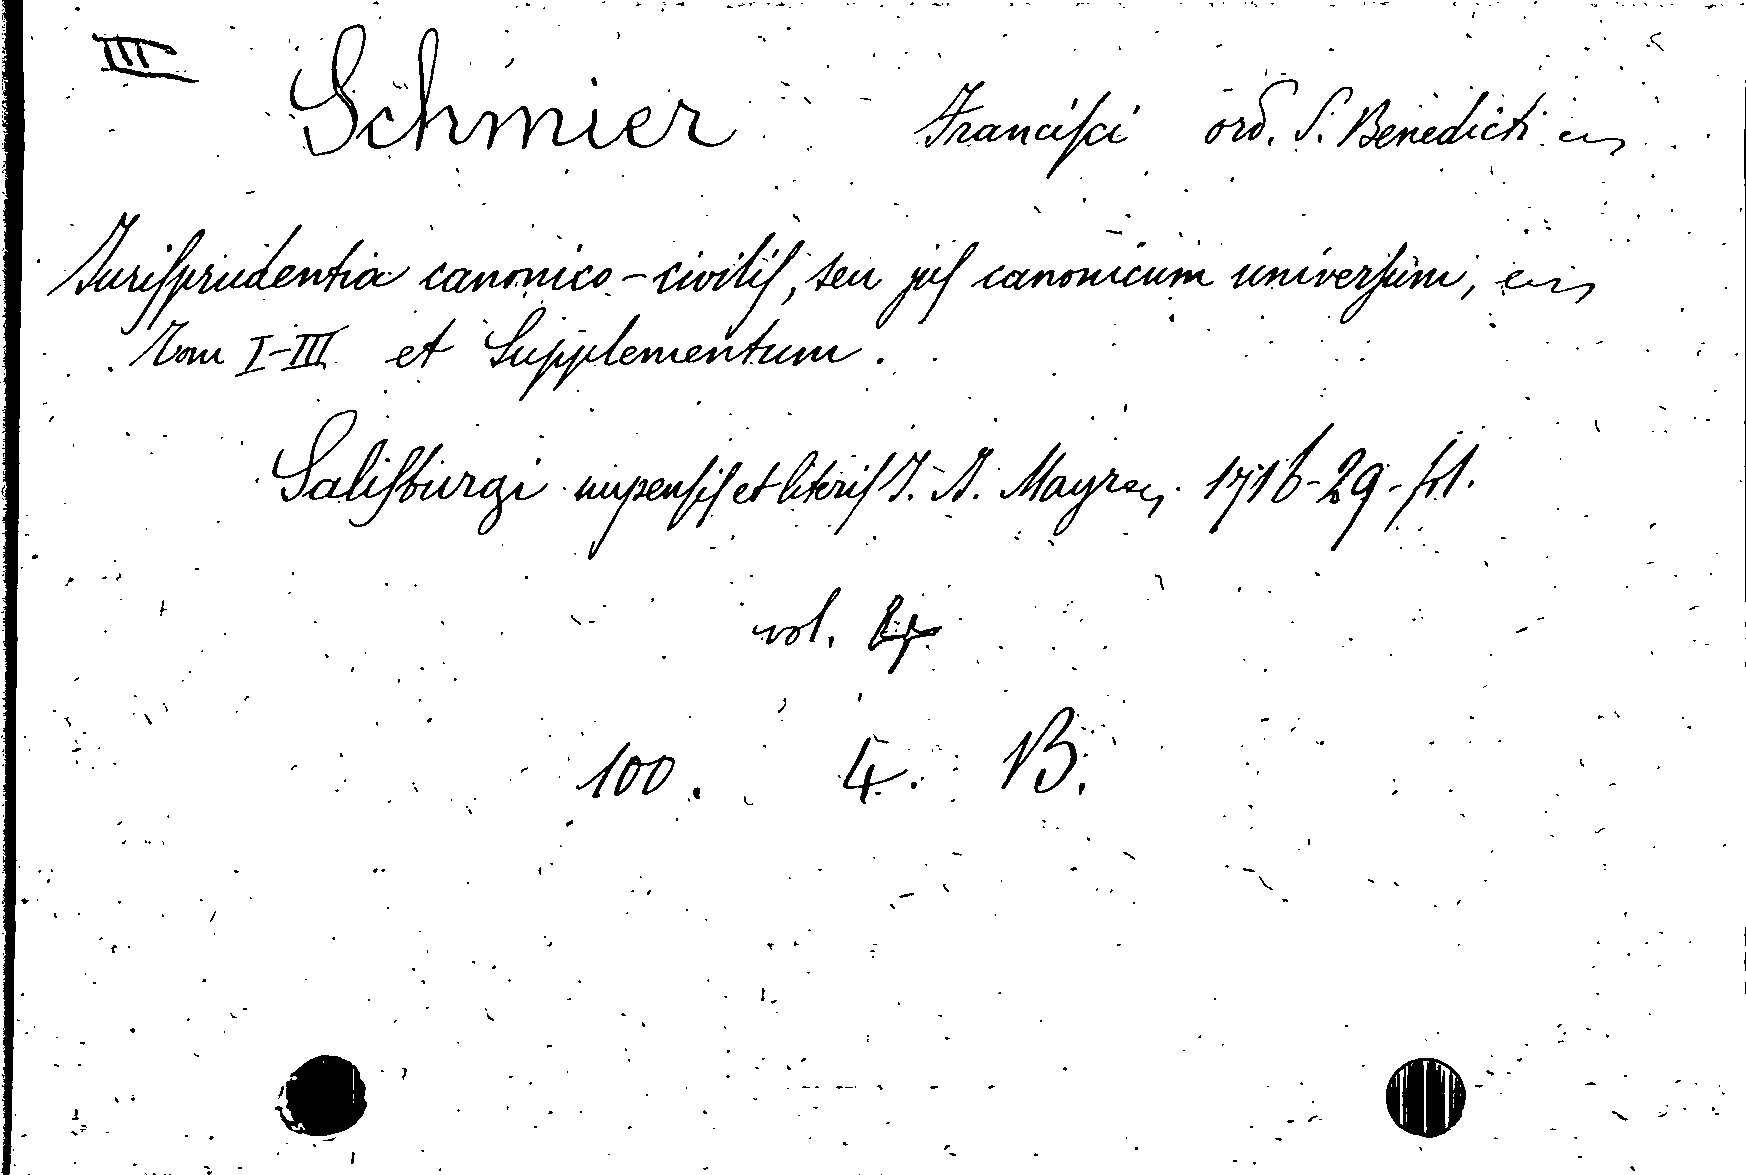 III
Schmier Francisci ord. S. Benedicti
Jurisprudentia canonico-civilis, seu jus canonicum universum,
Tom I-III et Supplementum.
Salisburgi impensis et literis J. A. Mayr 1716-29. fol.
vol.
100. 4. B.